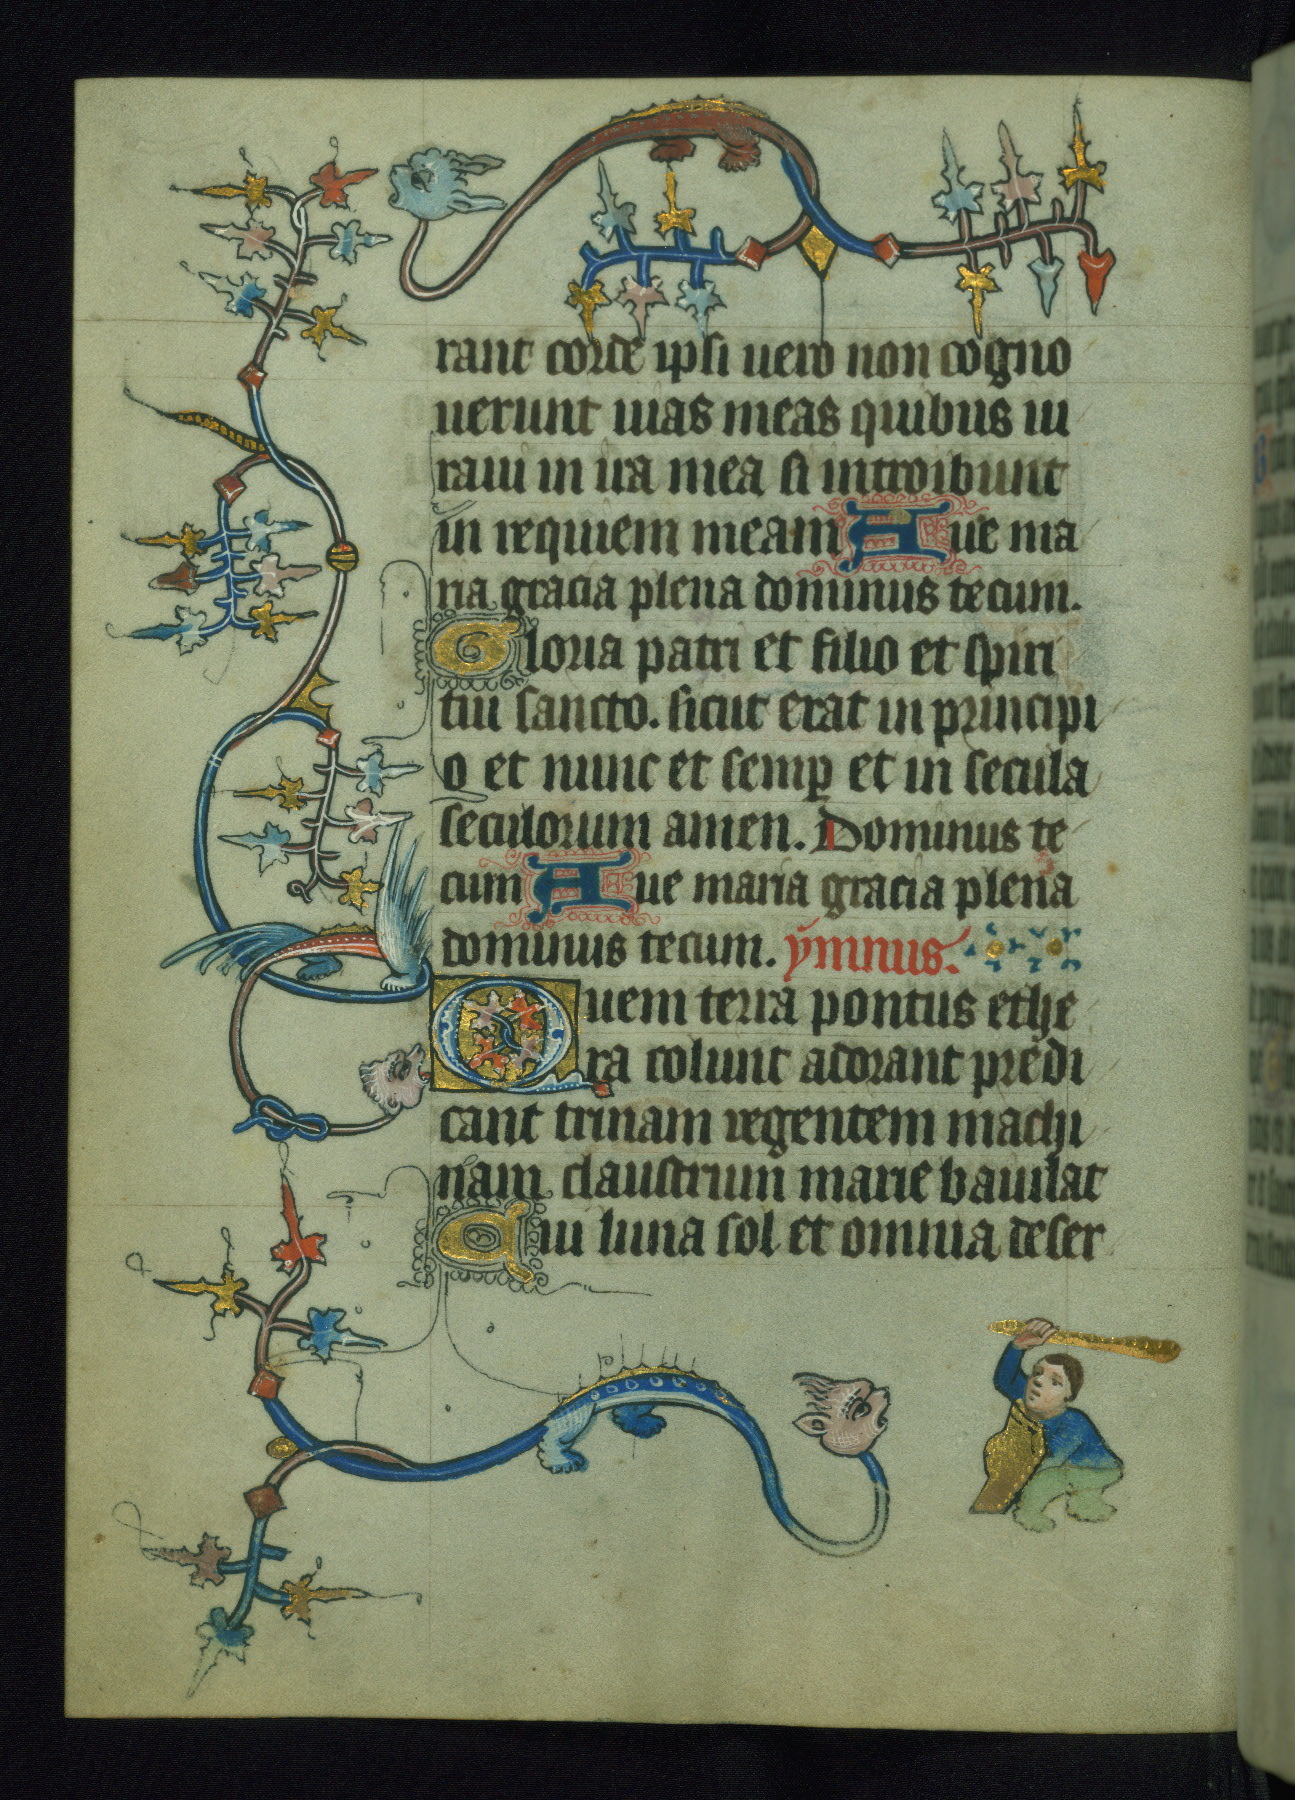 rant corde ipsi uero non cogno
uerunt uias meas quibus iu
raui in ira mea si introibunt
in requiem meam Aue ma
ria gracia plena dominus tecum.
Gloria patri et filio et spiri
tui sancto. sicut erat in principi
o et nunc et semp et in secula
seculorum amen. Dominus te
cum Aue maria gracia plena
dominus tecum. ymnus.
Quem terra pontus ethe
ra colunt adorant predi
cant trinam regentem machi
nam claustrum marie bauilat
Qui luna sol et omnia deser